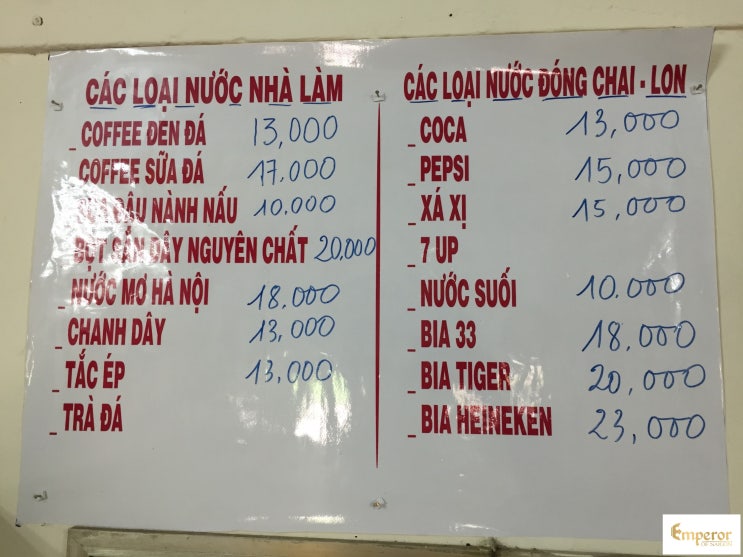 CÁC LOẠI NƯỚC NHÀ LÀM
_ COFFEE ĐEN ĐÁ 13,000
_ COFFEE SỮA ĐÁ 17.000
ĐẬU NÀNH NẤU 10.000
BỘT SẮN DÂY NGUYÊN CHẤT 20.000
_ NƯỚC MƠ HÀ NỘI 18.000
_ CHANH DÂY 13,000
_ TẮC ÉP 13,000
_ TRÀ ĐÁ
CÁC LOẠI NƯỚC ĐÓNG CHAI - LON
_ COCA 13,000
_ PEPSI 15,000
_ XÁ XỊ 15,000
_ 7 UP
_ NƯỚC SUỐI 10.000
_ BIA 33 18,000
_ BIA TIGER 20,000
_ BIA HEINEKEN 23,000
Emperor